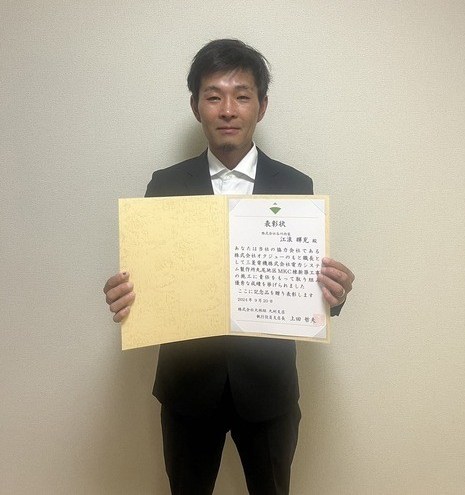 表彰状
江波 輝充 殿
あなたは当社の協力会社である
株式会社オクジューのもと職長と
して三菱電機株式会社電力システ
ム製作所丸尾地区MKC棟新築工事
の施工に責任をもって取り組み
優秀な成績を挙げられました
ここに記念品を贈り表彰します
株式会社大林組 九州支店
執行役員支店長 上田 哲夫